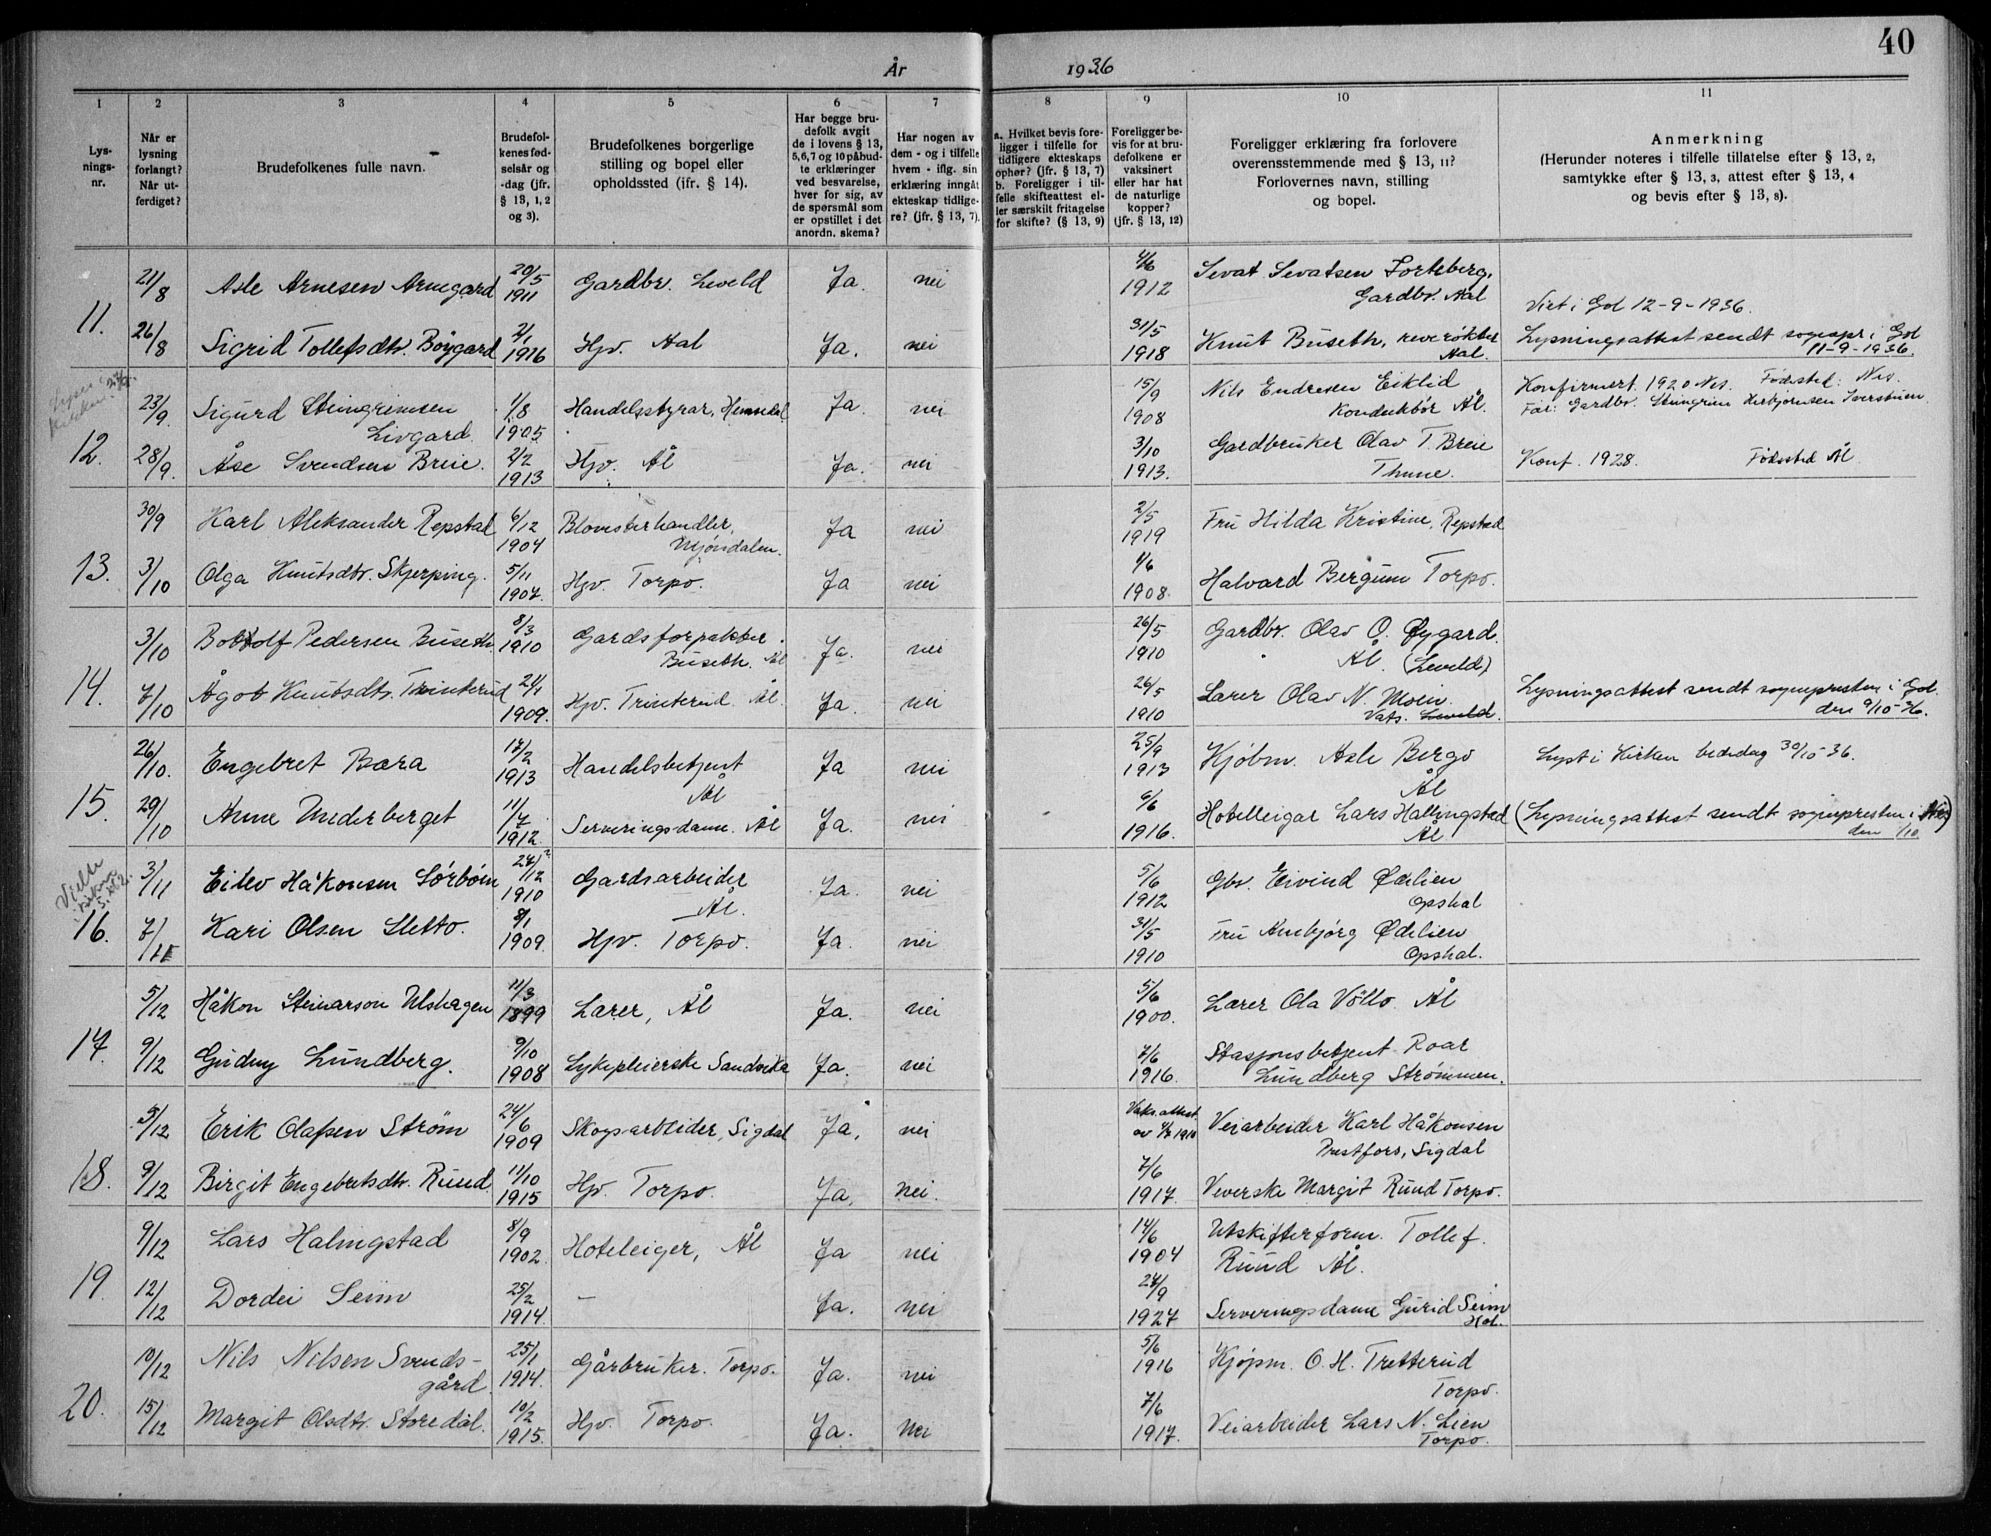 40
År 1936
1 2 3 4 5 6 7 8 9 10 11
Lys-
nings-
nr.
Når er
lysning
forlangt?
Når ut-
ferdiget?
Brudefolkenes fulle navn.
Brudefol-
kenes fød-
selsår og
-dag (jfr.
§ 13, 1, 2
og 3).
Brudefolkenes borgerlige
stilling og bopel eller
opholdssted (ifr. § 14).
Har begge bru-
defolk avgit
de i lovens § 13,
5,6,7 og 10 påbud-
te erklæringer
ved besvarelse,
hver for sig, av
de spørsmål som
er opstillet i det
anordn. skema?
Har nogen av
dem - og i tilfelle
hvem - iflg. sin
erklæring inngått
ekteskap tidlige-
re? (jfr. § 13, 7).
a. Hvilket bevis fore-
ligger i tilfelle for
tidligere ekteskaps
ophør? (jfr. § 13, 7)
b. Foreligger i til-
felle skifteattest el-
ler særskilt fritagelse
for skifte? (§ 13, 9)
Foreligger be-
vis for at bru-
defolkene er
vaksinert
eller har hat
de naturlige
kopper?
(jfr. § 13, 12)
Foreligger erklæring fra forlovere
overensstemmende med § 13, 11?
Forlovernes navn, stilling
og bopel.
Anmerkning
(Herunder noteres i tilfelle tillatelse efter § 13, 2,
samtykke efter § 13, 3, attest efter § 13, 4
og bevis efter § 13, 8).
11.
21/8 Asle Arnesen Arnegard 20/5 1911 Gardbr. Leveld Ja. nei 4/6 1912 Sevat Sevatsen Torteberg,
Gardbr. Aal
Viet i Gol 12-9-1936.
26/8 Sigrid Tollefsdtr. Bøygard 2/1 1916 Hjv. Aal Ja. nei 31/5 1918 Knut Buseth, reverøkter
Aal.
Lysningsattest sendt sognepr. i Gol
11-9-1936.
12.
23/9. Sigurd Steingrimsen
Livgard 1/8 1905. Handelsstyrar, Hemsedal Ja. nei 15/9 1908 Nils Endresen Eiklid
Konduktør Ål.
Konfirmert 1920 Nes. Fødested: Nes.
Far: Gardbr. Steingrim Iverstuen
28/9. Åse Svendsen Breie. 2/2 1913 Hjv. Ål Ja. nei 3/10 1913. Gardbruker Olav T. Breie
Thune.
Konf. 1928. Fødested Ål
13.
30/9 Karl Aleksander Repstad 6/12 1904 Blomsterhandler,
Mjøndalen. Ja nei 2/5 1919 Fru Hilda Kristine, Repstad
3/10 Olga Knutsdtr. Skjerping. 5/11 1907. Hjv. Torpo. Ja nei 4/6 1908 Halvard Bergum Torpo.
14.
3/10 Botolf Pedersen Buseth. 8/3 1910 Gardsforpakter.
Buseth. Ål Ja. nei 26/5 1910 Gardbr. Olav O. Øygard.
Ål. (Leveld)
7/10 Ågot Knutsdtr. Trinterud 24/1 1909. Hjv. Trinterud Ål. Ja. nei 26/5 1910 Lærer Olav N. Moen.
Vats. Leveld.
Lysningsattest sendt sognepresten i Gol.
den 9/10-36.
15.
26/10. Engebret Bæra 17/2 1913 Handelsbetjent
Ål Ja nei 25/9 1913 Kjøbm. Asle Bergo
Ål
Lyst i Kirken bededag 30/10 36.
29/10 Anne Underberget 11/7 1912. Serveringsdame. Ål Ja. nei 6/6 1916. Hotelleigar Lars Hallingstad
Ål
(Lysningsattest sendt sognepresten i Nes)
den 1/10
Viede
i kirken
16.
3/11 Eilev Håkonsen Sørbøen 27/12 1910 Gardsarbeider
Ål. Ja. nei 5/6 1912 Gbr. Eivind Ødelien
Opshal
7/11 Kari Olsen Sletto. 8/1 1909. Hjv. Torpo. Ja. nei 31/5 1910 Fru Ambjørg Ødelien
Opshal.
17.
5/12 Håkon Steinarson Ulshagen 11/3 1899 Lærer, Ål Ja. nei 5/6 1900. Lærer Ola Vøllo Ål
9/12 Gudny Lundberg. 9/10 1908 Sykepleierske Sandvika Ja. nei 7/6 1916. Stasjonsbetjent Roar
Lundberg Strømmen.
18.
5/12 Erik Olafsen Strøm 24/6 1909 Skogsarbeider, Sigdal Ja, nei Vaks. attest
av 1/7 1910 Veiarbeider Karl Håkonsen
Prestfoss, Sigdal
9/12 Birgit Engebretsdtr. Rund 11/10 1915 Hjv. Torpo. Ja. Nei. 7/6 1917. Veverske Margit Rund Torpo.
19.
9/12 Lars Halingstad 8/9 1902. Hoteleiger, Ål Ja nei 14/6 1904 Utskifterform. Tollef.
Rund Ål.
12/12 Dordei Seim 25/2 1914. — Ja. nei 27/9 1927 Serveringsdame Gurid Seim
Hol.
20.
10/12 Nils Nilsen Svends-
gård 25/1 1914. Gårbruker. Torpo. Ja. nei 5/6 1916 Kjøpm. O. H. Tretterud
Torpo.
15/12 Margit Olsdtr. Storedal. 10/2 1915. Hjv. Torpo. Ja. Nei 7/6 1917. Veiarbeider Lars N. Lien
Torpo.